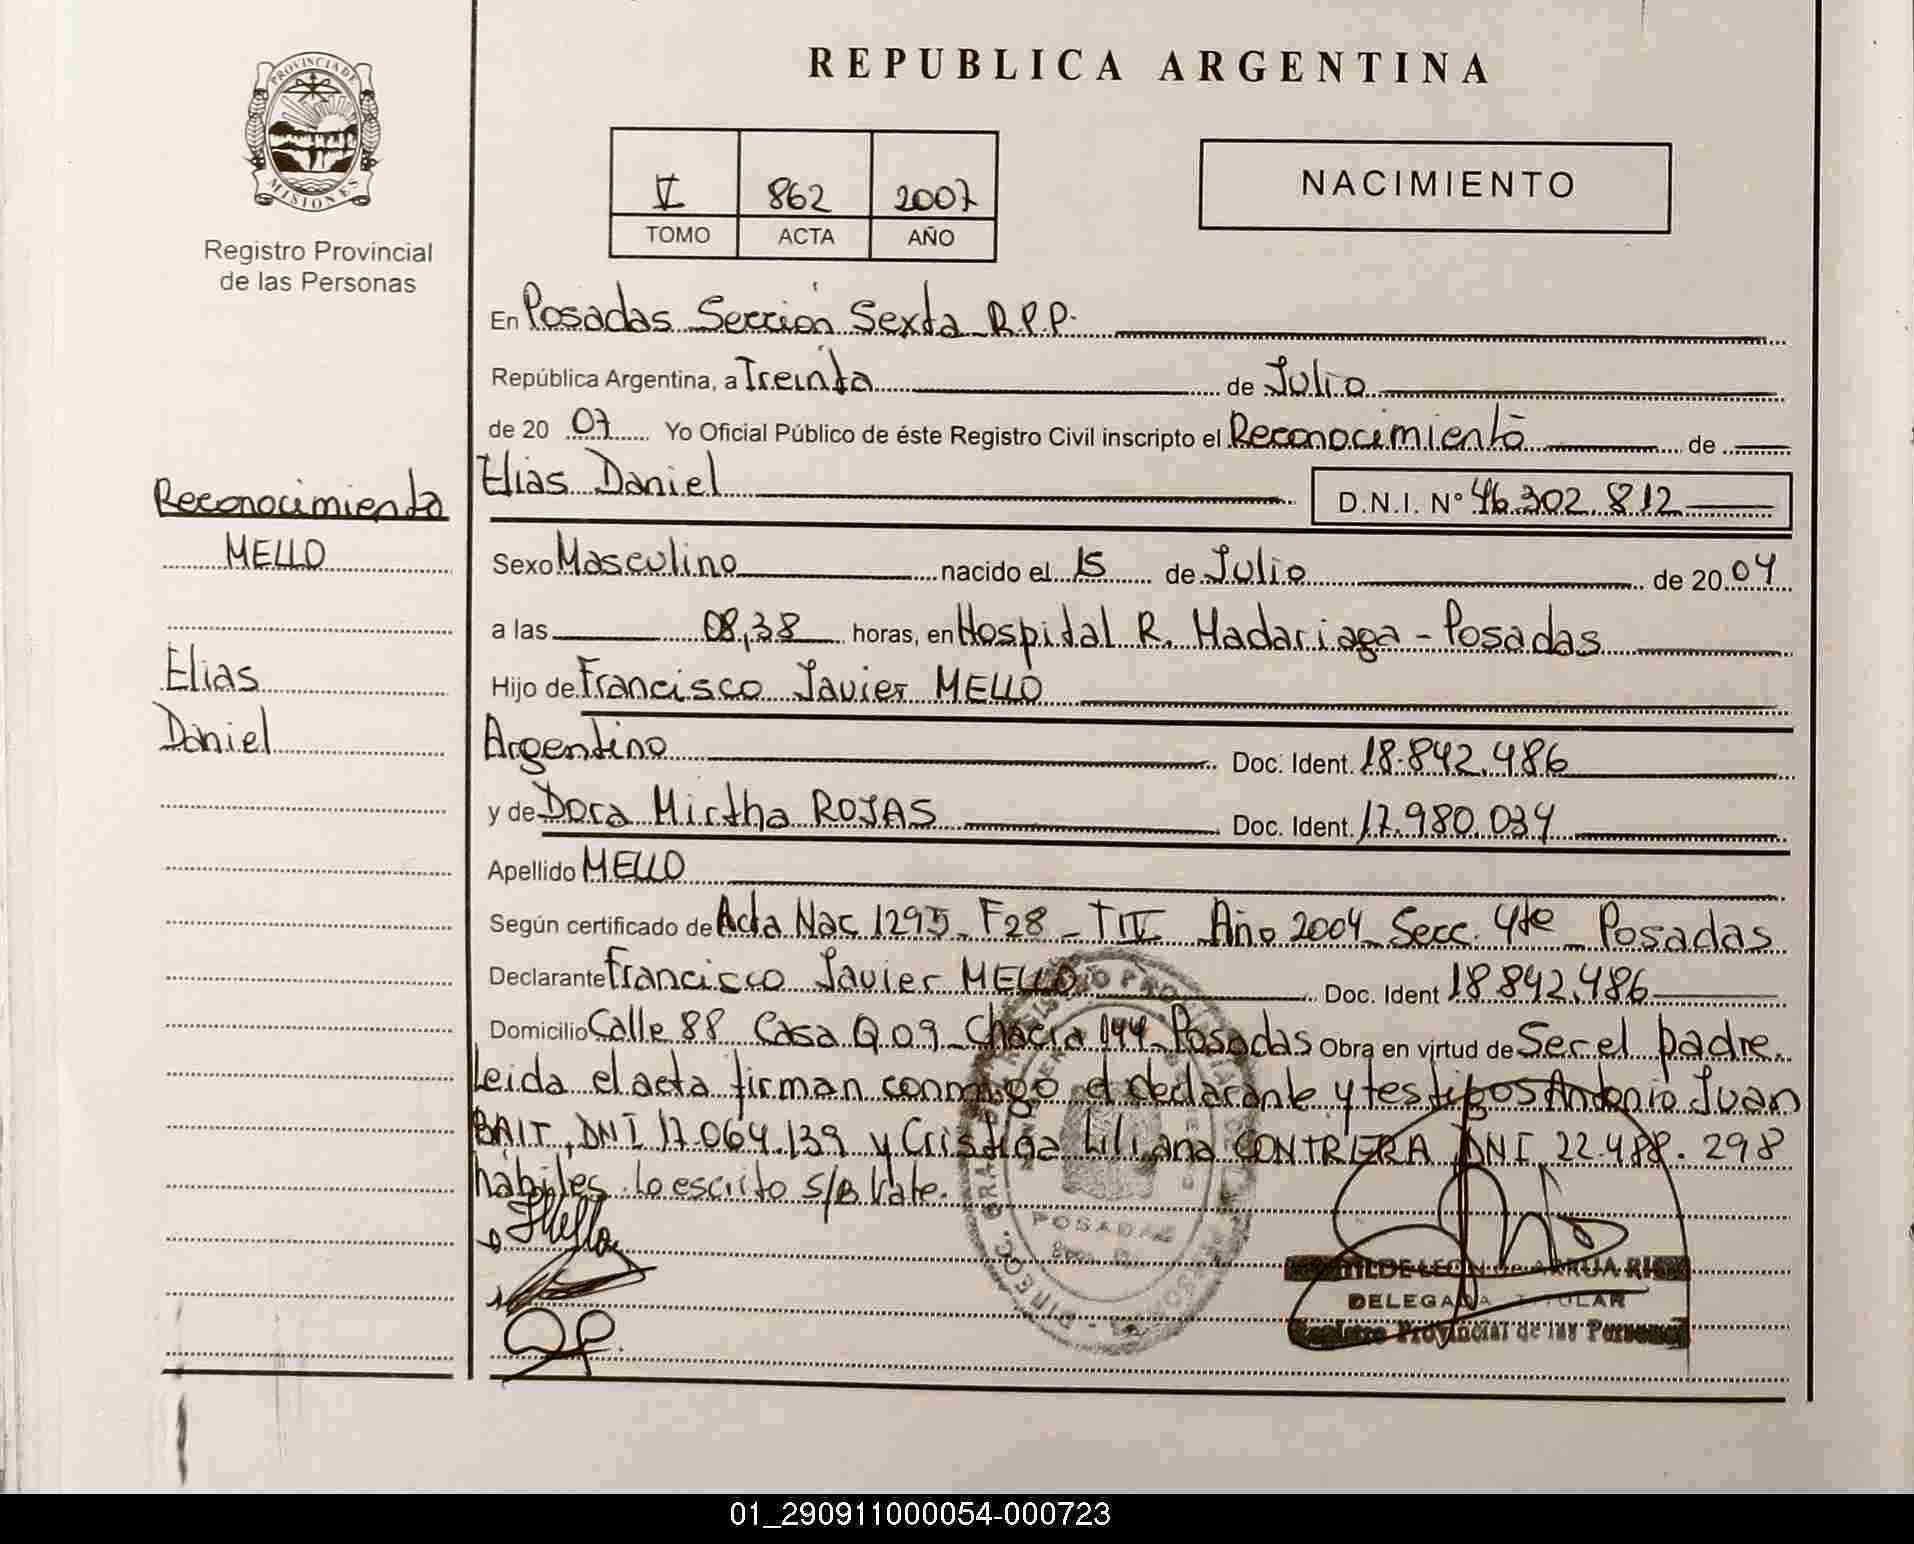 PROVINCIA DE
MISIONES
Registro Provincial
de las Personas
REPUBLICA ARGENTINA
V 862 2007
TOMO ACTA AÑO
NACIMIENTO
En Posadas Sección Sexta R.P.P.
República Argentina, a Treinta de Julio
de 20 07 Yo Oficial Público de éste Registro Civil inscripto el Reconocimiento de
Elias Daniel D.N.I. N° 46.302.812
Reconocimiento
MELLO
Elias
Daniel
Sexo Masculino nacido el 15 de Julio de 20 04
a las 08,38 horas, en Hospital R. Madariaga - Posadas
Hijo de Francisco Javier MELLO
Argentino Doc. Ident. 18.842.486
y de Dora Mirtha ROJAS Doc. Ident. 17.980.034
Apellido MELLO
Según certificado de Acta Nac 1295 - F28 - TIV Año 2004 Secc. 4te Posadas
Declarante Francisco Javier MELLO Doc. Ident 18.842.486
Domicilio Calle 88 Casa Q 09 - Chacra 144 - Posadas Obra en virtud de Ser el padre.
Leida el acta firman conmigo el declarante y testigos Antonio Juan
BAIT, DNI 17.064.139 y Cristina Liliana CONTRERA DNI 22.488.298
hábiles. Lo escrito s/B Vale.
POSADAS
DELEGADA TITULAR
Registro Provincial de las Personas
01_290911000054-000723